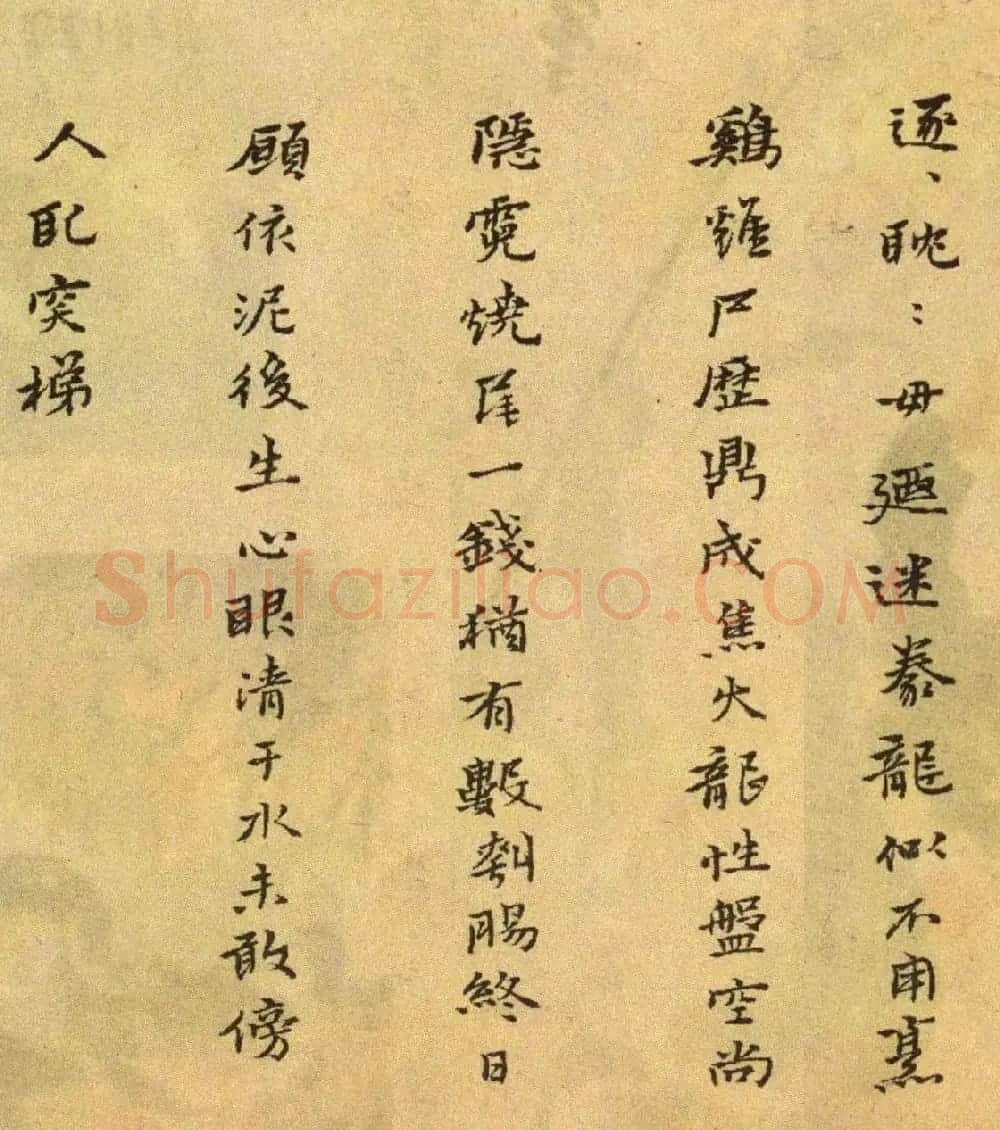 逐、眈：毋廼迷豢龍似不用烹
鷄雖尸歷鼎成焦火龍性盤空尚
隱霓燒尾一錢猶有數刳腸終日
顧依泥後生心眼清于水未敢傍
人配突梯
Shufaziliao.COM